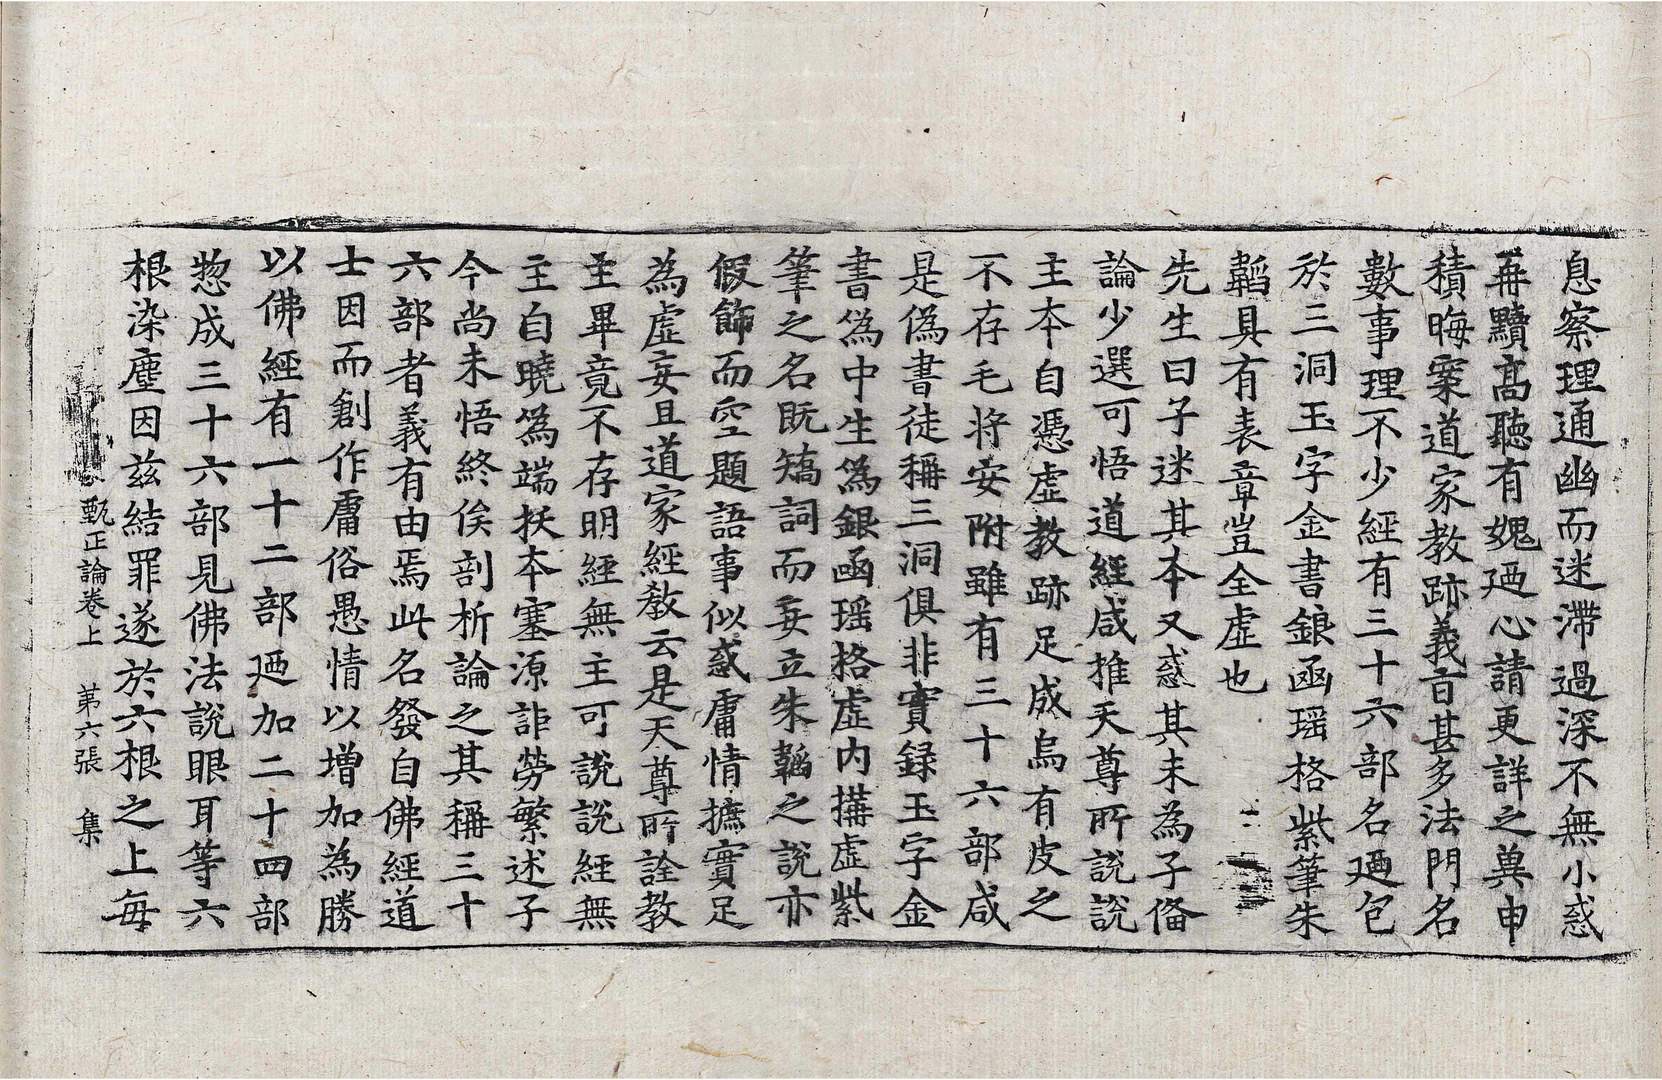 息察理通幽而迷滯過深不無小惑
再黷高聽有媿廼心請更詳之兾申
積晦案道家教跡義旨甚多法門名
數事理不少經有三十六部名廼包
於三洞玉字金書銀函瑶格紫筆朱
韜具有表章豈全虚也
先生曰子迷其夲又惑其末為子俻
論少選可悟道經咸推天尊所說說
主夲自憑虚教跡足成烏有皮之
不存毛將安附雖有三十六部咸
是偽書徒稱三洞俱非實録玉字金
書偽中生為銀函瑶格虚內搆虚紫
筆之名旣矯詞而妄立朱韜之說亦
假飾而空題語事似惑庸情摭實足
為虚妄且道家經教云是天尊所詮教
主畢竟不存明經無主可說說經無
主自曉為端拔夲塞源詎勞繁述子
今尚未悟終俟剖析論之其稱三十
六部者義有由焉此名發自佛經道
士因而創作庸俗愚情以增加為勝
以佛經有一十二部廼加二十四部
惣成三十六部見佛法說眼耳等六
根染塵因兹結罪遂於六根之上每
甄正論卷上 苐六張 集